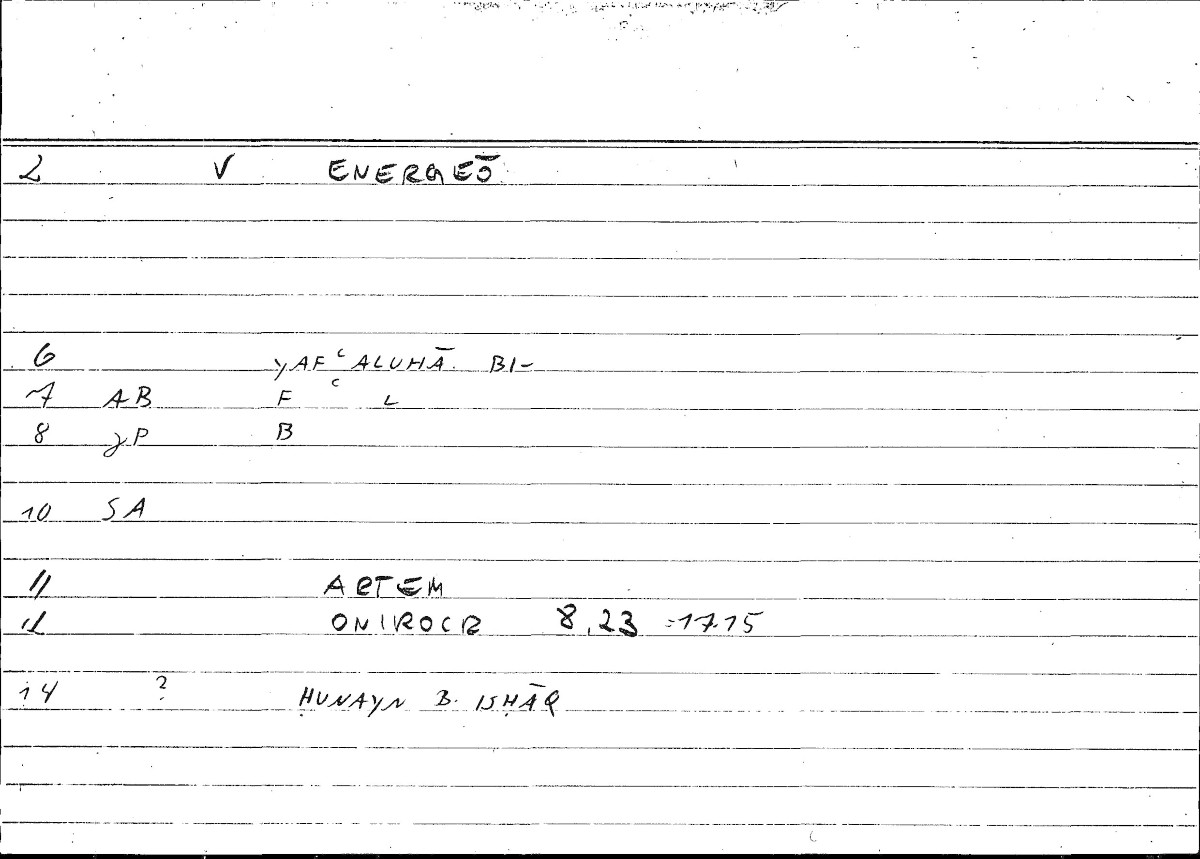 2 V ENERGEŌ
6 YAFʿALUHĀ. BI-
7 AB F ʿ L
8 γP B
10 SA
11 ARTEM
12 ONIROCR 8,23 =17.15
14 ? ḤUNAYN B. ISḤĀQ